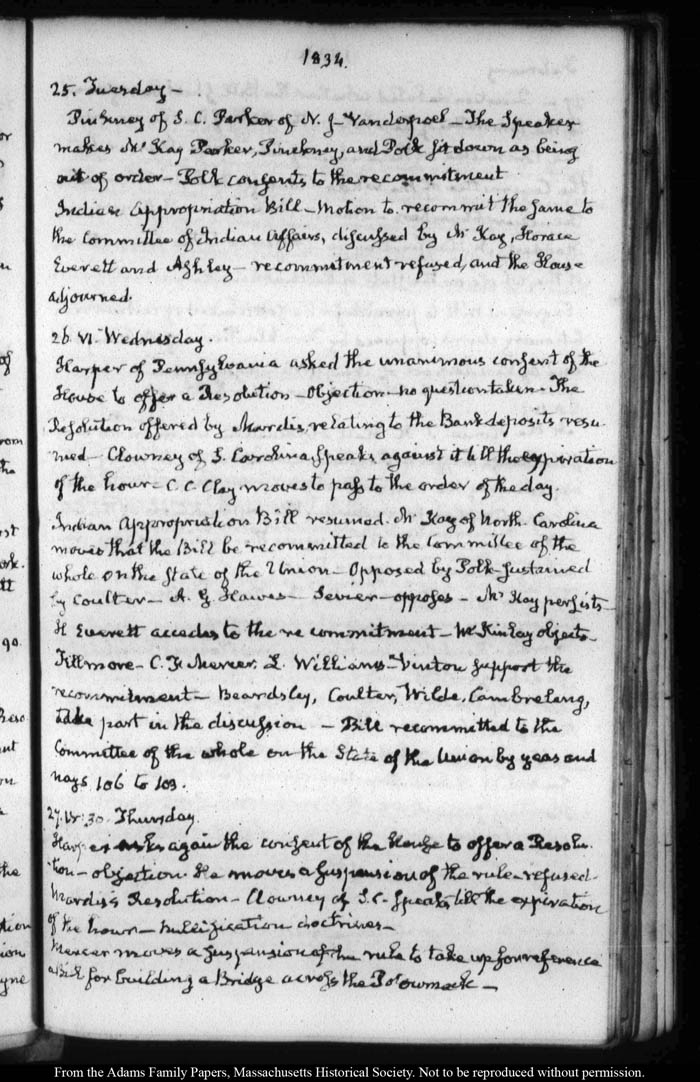 1834.
25. Tuesday—
Pinckney of S. C. Parker of N. J— Vanderpoel— The Speaker
makes Mc Kay Parker, Pinckney, and Polk sit down as being
out of order— Polk consents to the recommitment
Indian appropriation Bill— Motion to recommit the same to
the Committee of Indian Affairs, discussed by Mc Kay, Horace
Everett and Ashley— recommitment refused, and the House
adjourned.
26. VI. Wednesday.
Harper of Pennsylvania asked the unanimous consent of the
House to offer a Resolution— Objection— no question taken. The
Resolution offered by Mardis, relating to the Bank deposits resu-
med— Clowney of S. Carolina, speaks against it till the expiration
of the hour— C. C. Clay moves to pass to the order of the day.
Indian appropriation Bill resumed. Mc Kay of North Carolina
moves that the Bill be recommitted to the Committee of the
whole on the State of the Union— Opposed by Polk— sustained
by Coulter— A. G. Hawes— Sevier— opposes— Mc Kay persists—
H Everett accedes to the recommitment— McKinlay objects—
Fillmore— C. F. Mercer, L. Williams— Vinton support the
recommitment— Beardsley, Coulter, Wilde, Cambreleng,
take part in the discussion— Bill recommitted to the
Committee of the whole on the State of the Union by yeas and
nays 106 to 103.
27. IV. 30. Thursday.
Harper asks again the consent of the House to offer a Resolu-
tion— objection. He moves a suspension of the rule— refused.
Mardis's Resolution— Clowney of S. C. speaks till the expiration
of the hour— nullification doctrines—
Mercer moves a suspension of the rule to take up for reference
a Bill for building a Bridge across the Potowmack—
From the Adams Family Papers, Massachusetts Historical Society. Not to be reproduced without permission.